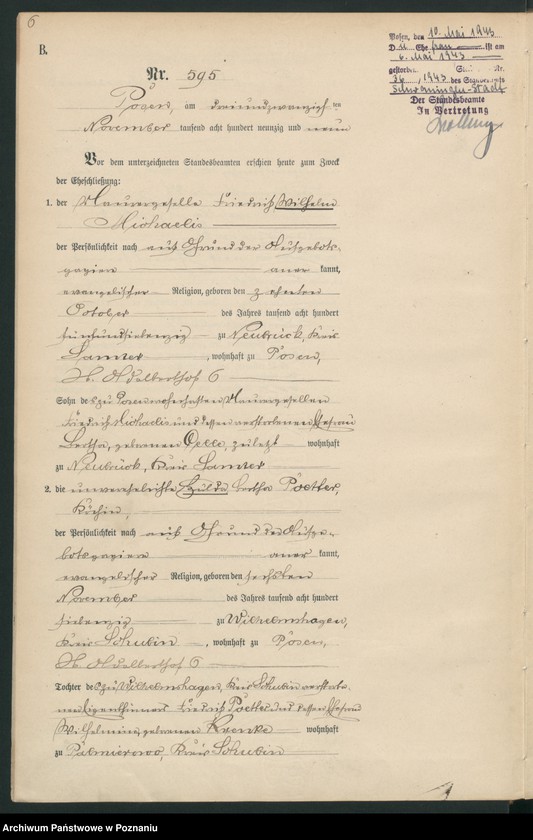 6
B.
Nr. 595
Posen, am dreiundzwanzigsten
November tausend acht hundert neunzig und neun
Vor dem unterzeichneten Standesbeamten erschien heute zum Zweck
der Eheschließung:
1. der Maurergeselle Friedrich Wilhelm
Michaelis
der Persönlichkeit nach auf Grund der Aufgebots-
papiere anerkannt,
evangelischer Religion, geboren den zehnten
October des Jahres tausend acht hundert
fünfundsiebenzig zu Neubrück, Kreis
Samter, wohnhaft zu Posen,
St. Adalberthof 6
Sohn des zu Posen wohnhaften Maurergesellen
Friedrich Michaelis und dessen verstorbenen Ehefrau
Bertha, geborenen zuletzt wohnhaft
zu Neubrück, Kreis Samter
2. die unverehelichte Hulda Bertha Poetter,
Köchin,
der Persönlichkeit nach auf Grund des Aufge-
botspapiere anerkannt,
evangelischer Religion, geboren den sechsten
November des Jahres tausend acht hundert
siebenzig zu Wilhelmshagen,
Kreis Schubin, wohnhaft zu Posen,
St. Adalberthof 6
Tochter des zu Wilhelmshagen, Kreis Schubin verstorbe-
nen Eigenthümers Friedrich Poetter und dessen Ehefrau
Wilhelmine, geborenen Krenke wohnhaft
zu Palmierowo, Kreis Schubin
Posen, den 10. Mai 1943
D ie Ehefrau ist am
6. Mai 1943
gestorben Nr.
36, 1943 des Standesamts
Schwaningen-Stadt
Der Standesbeamte
In Vertretung
Archiwum Państwowe w Poznaniu